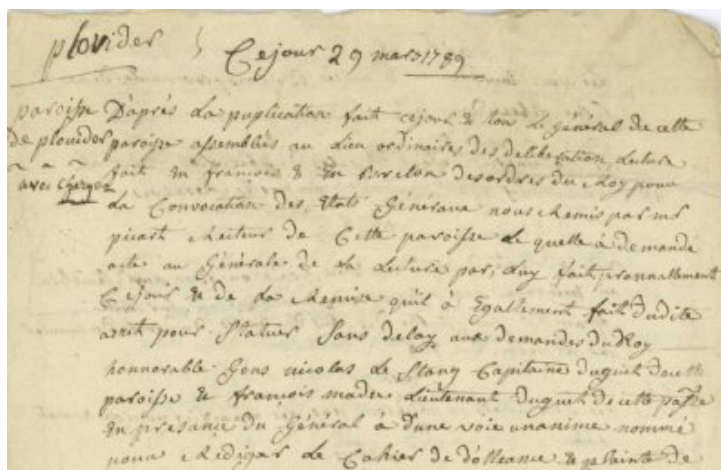 plovider
Cejour 29 mars 1789
paroisse
de plovider
avec charges
D'après La puplication fait cejour & tous Le général de cette
paroisse assemblés au Lieu ordinaires des deliberation Lecture
fait En françois & En Breton des ordres du Roy pour
La Convocation des Etats Généraux nous Remis par mr
picart Recteur de Cette paroisse Le quelle à demande
acte au Générale de La Lecture par Luy fait
Cejour & de La Remise quil à Egallement fait dudite
arrett pour Statuer Sans delay aux demandes du Roy
honnorable Gens nicolas Le Stang Capitaine duguet de cette
paroisse & françois madec Lieutenant duguet de cette
En presance du Général à d'une voie unanime nommé
pour Rediger Le Cahier de dolleance & plainte de